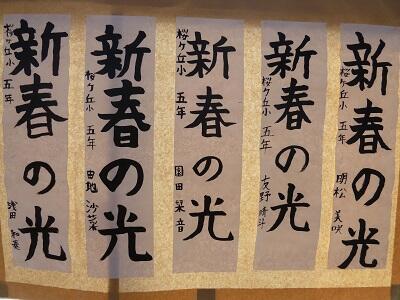 新春の光
桜ケ丘小 五年 明松 美咲
新春の光
桜ケ丘小 五年 友野
新春の光
桜ケ丘小 五年 園田 栞音
新春の光
桜ケ丘小 五年 沙菜
新春の光
桜ケ丘小 五年 浅田